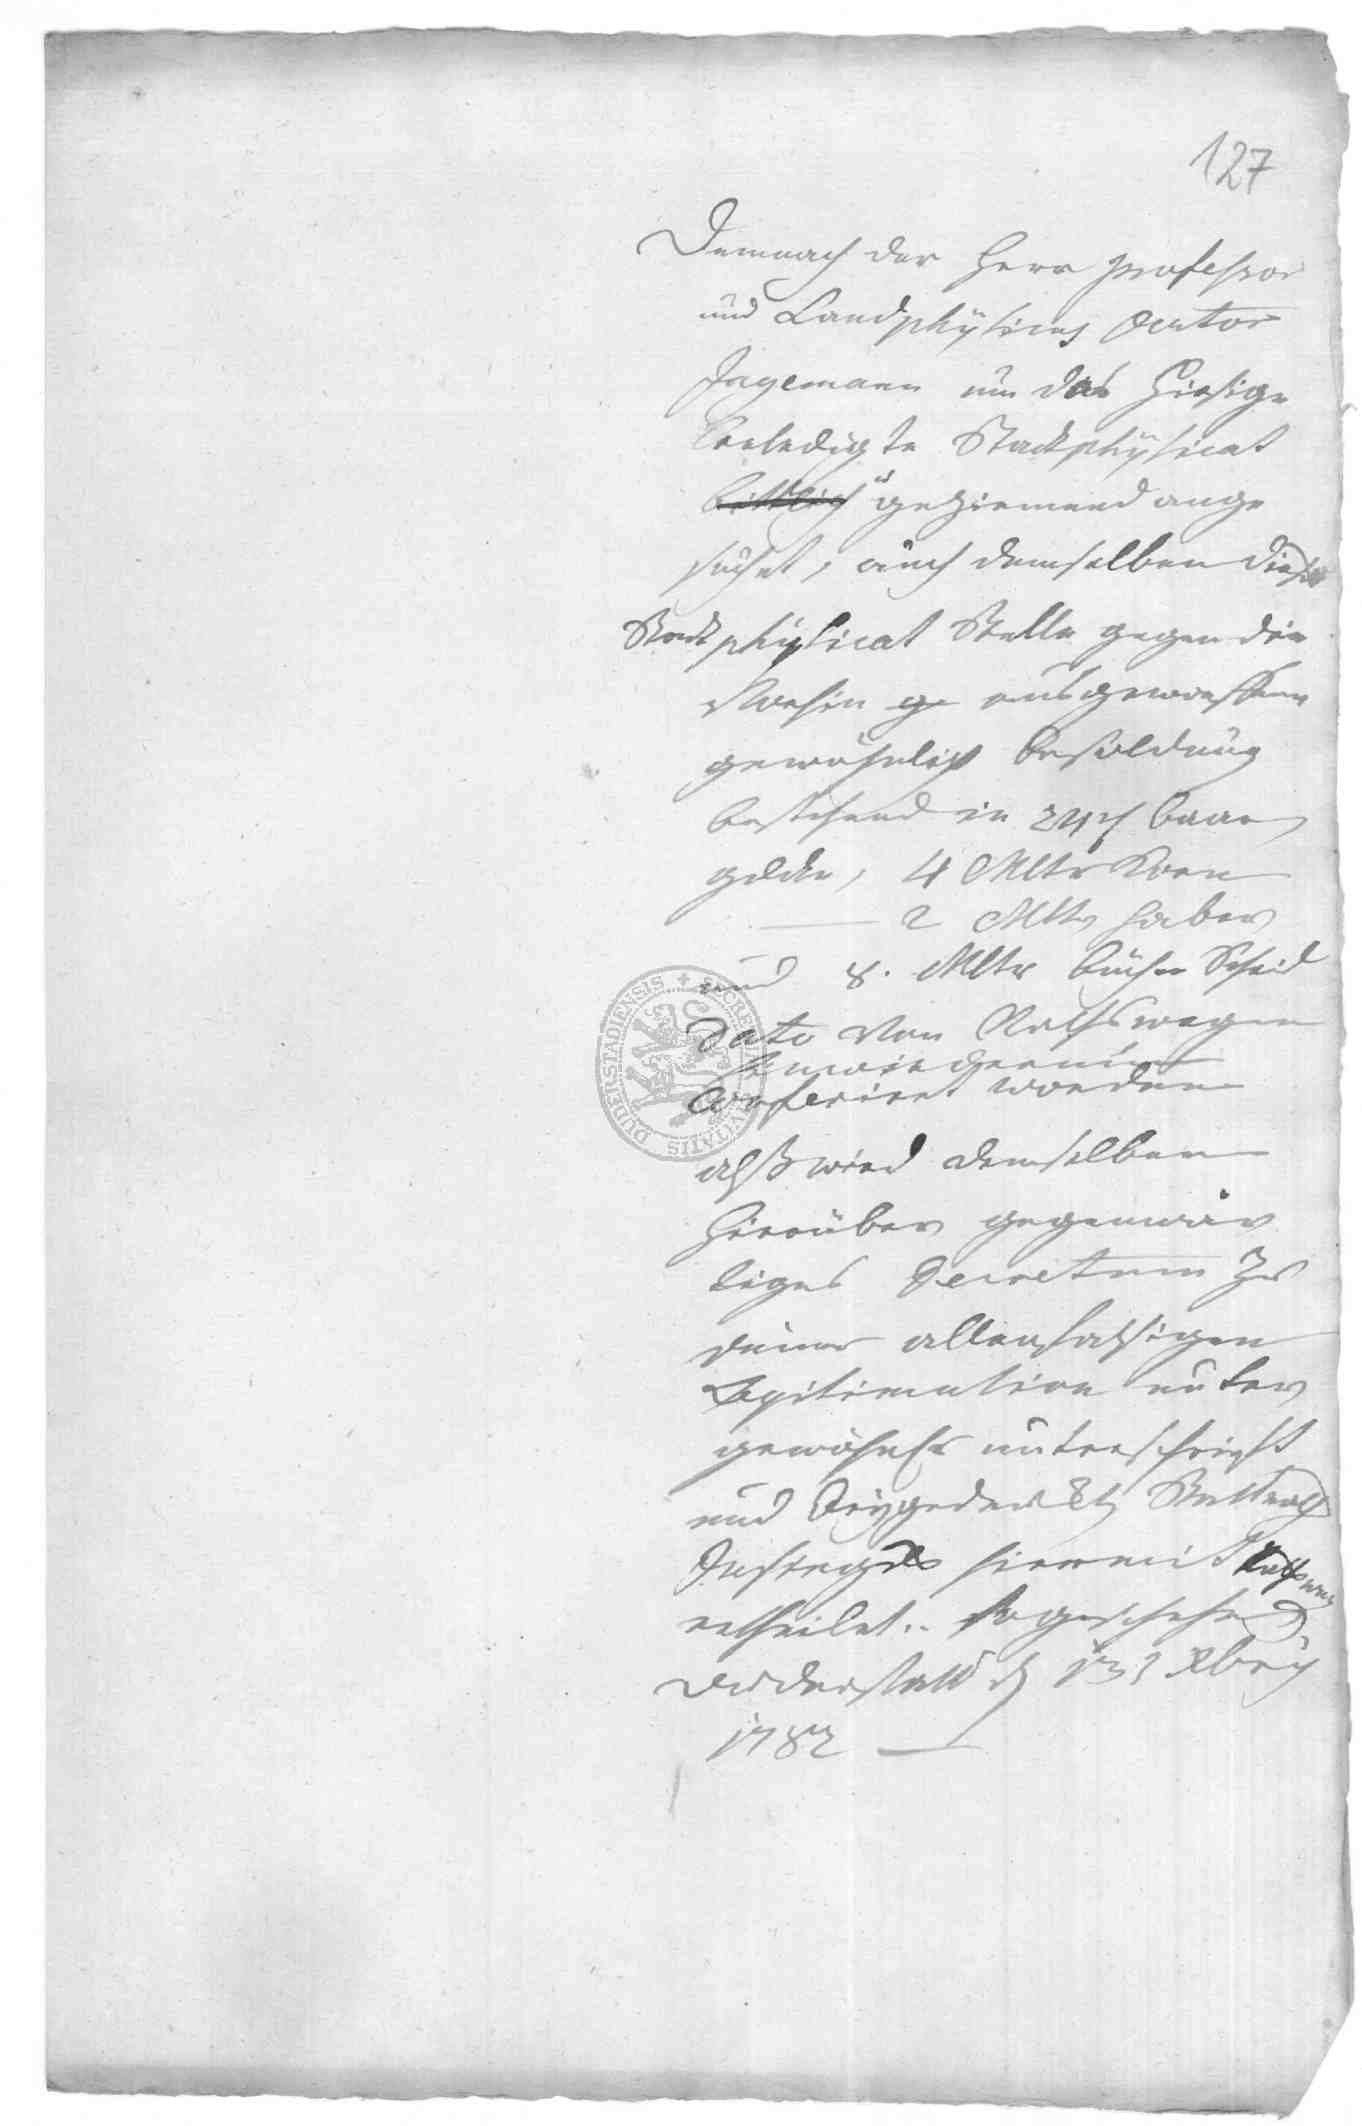 127
Demnach der Herr Professor
und Landphÿsicus Doctor
Jagemann um das hiesige
erledigte Stadtphÿsicat
bittlich geziemend ange
suchet, auch demselben diese
Stadt phÿsicat Stelle gegen die
vorhin ge ausgeworffene
gewöhnlich besoldung
bestehend in 24 baar
gelde, 4 Mltr Korn
2 Mltr haber
und 8. Mltr büchen Scheid
Dato von Rathswegen
conferiret worden
alß wird demselben
hierüber gegenwär
tiges Decretum zu
seiner allenfalsigen
Legitimation unter
gewöhnl. unterschrift
und beygedruckt Stadtrath
Insiegel hiermit
ertheilet. So geschehen
Duderstadt d 13 Xbris
1782
DUDERSTADIENSIS + SECRETUM CIVITATIS